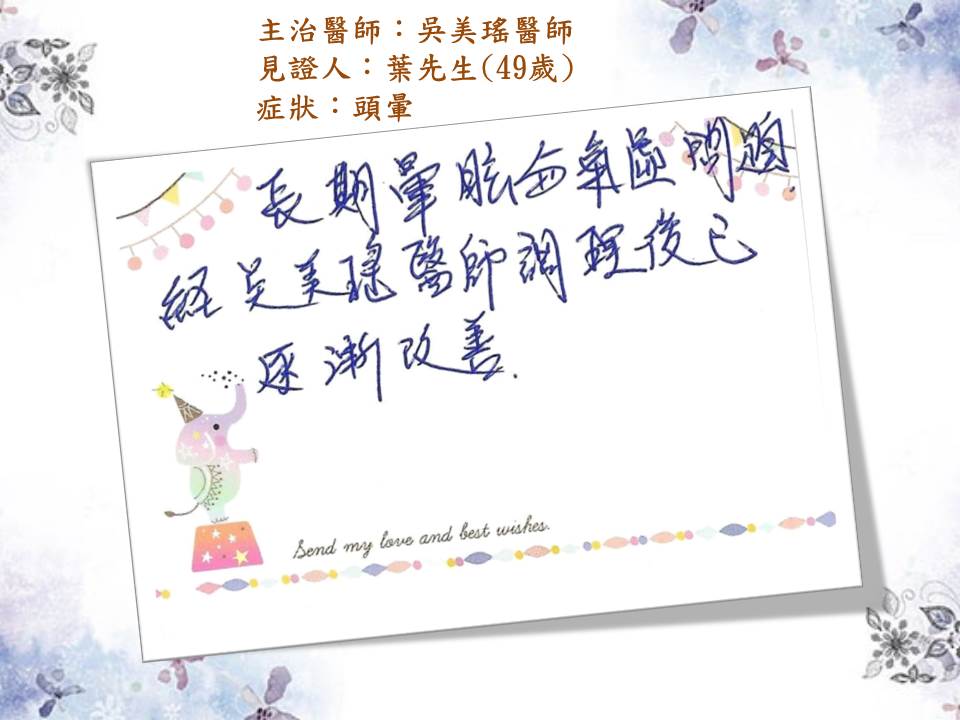 主治醫師：吳美瑤醫師
見證人：葉先生(49歲)
症狀：頭暈
長期暈眩氣虛問題.
經吳美瑤醫師調理後已
逐漸改善.
Send my love and best wishes.